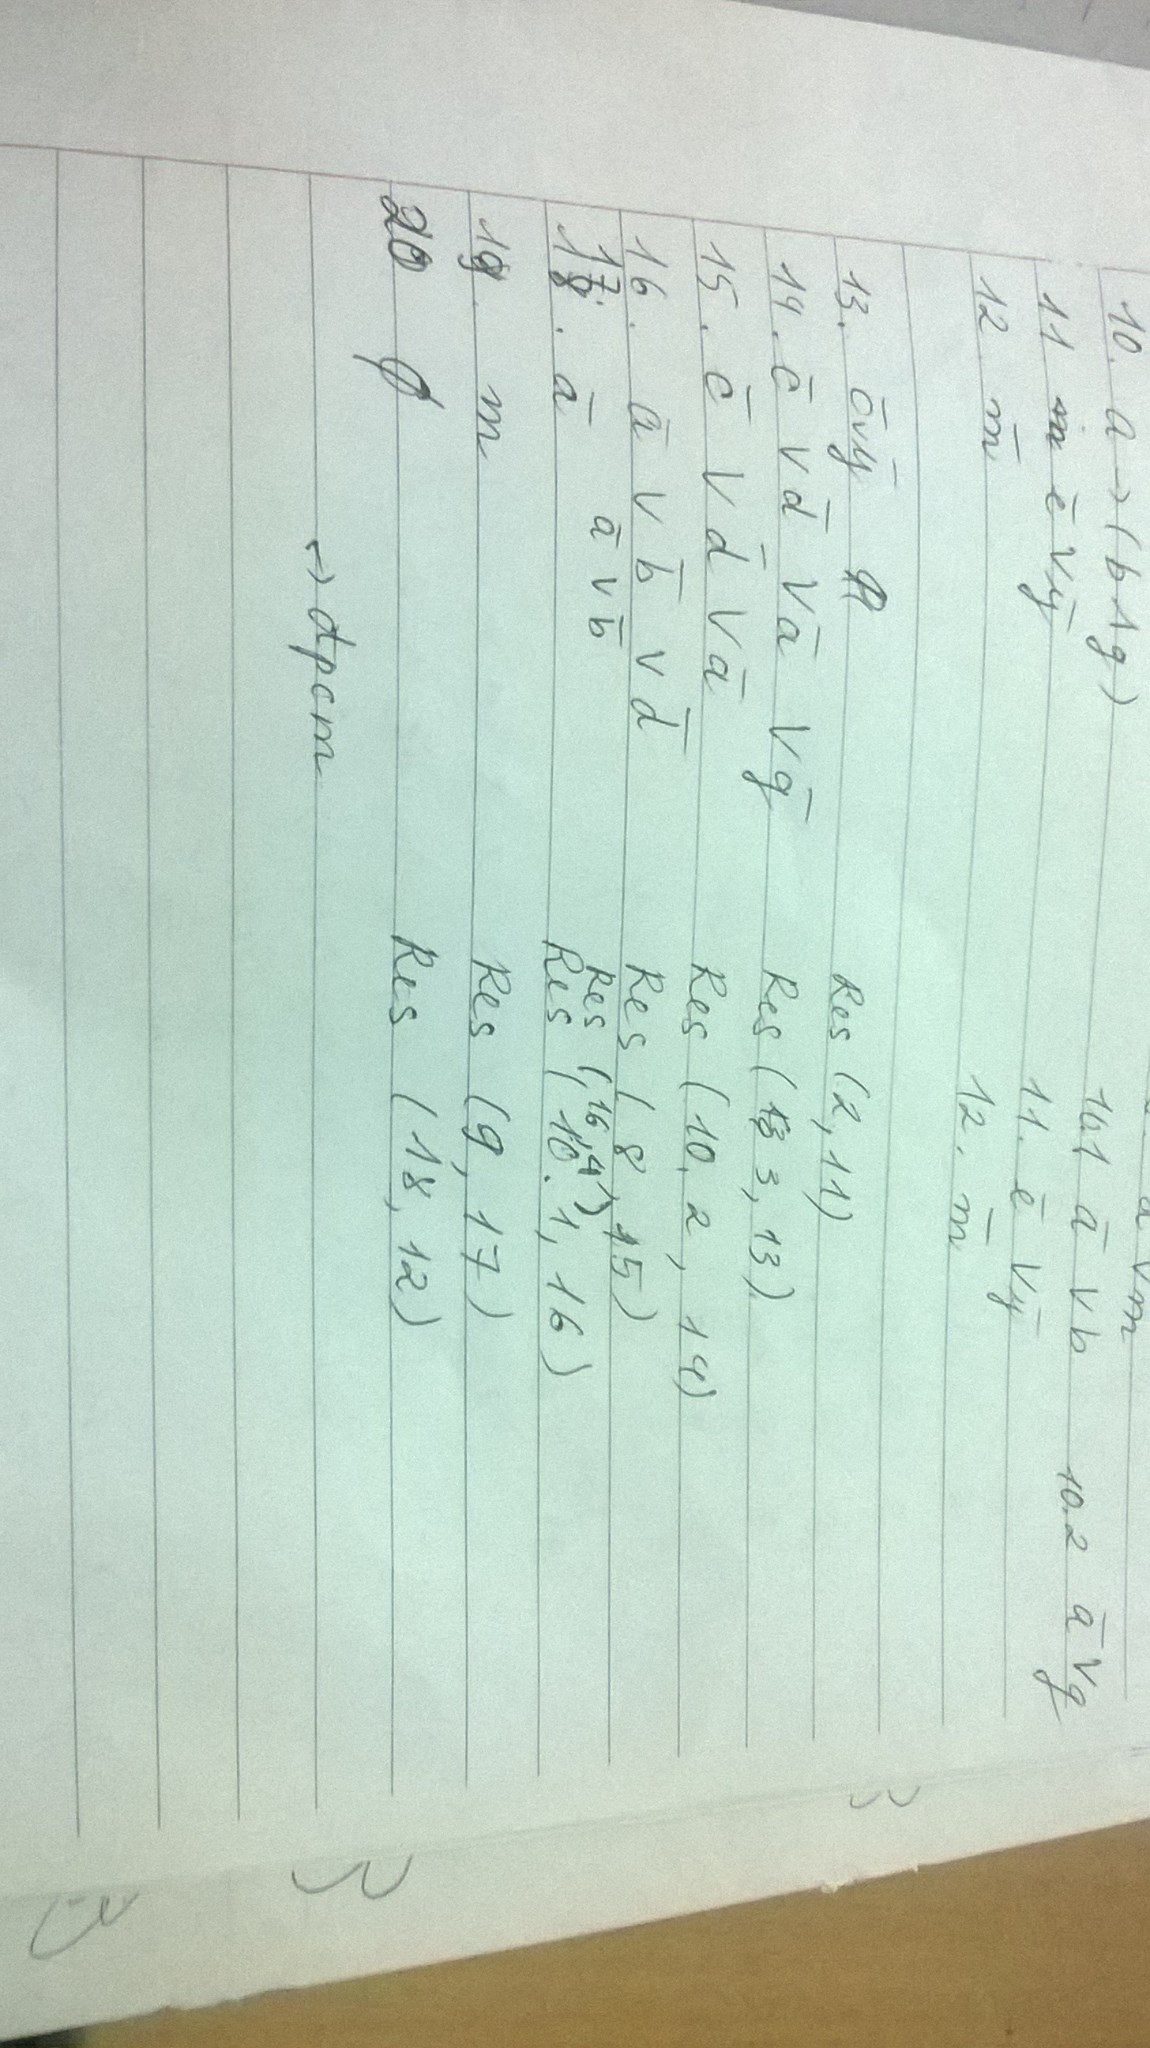 a ∨ m
10. a → (b ∧ g) 10.1 a̅ ∨ b 10.2 a̅ ∨ g
11 e̅ ∨ y̅ 11. e̅ ∨ y̅
12. m̅ 12. m̅
13. c̅ ∨ y̅ Res (2, 11)
14. c̅ ∨ d̅ ∨ a̅ ∨ g̅ Res (3, 13)
15. c̅ ∨ d̅ ∨ a̅ Res (10.2, 14)
16. a̅ ∨ b̅ ∨ d̅ Res (8, 15)
17. a̅ ∨ b̅ Res (16, 4)
18. a̅ Res (10.1, 16)
19. m Res (9, 17)
20 ∅ Res (18, 12)
→ dpcm